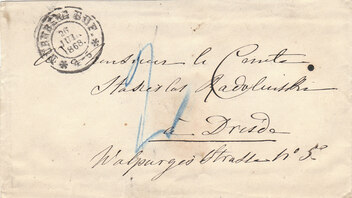 BUF.
26
JUL.
1868
Monsieur le Comte
Stanislas Radolinski
à Dresde
Walpurgis Strasse No 5
2